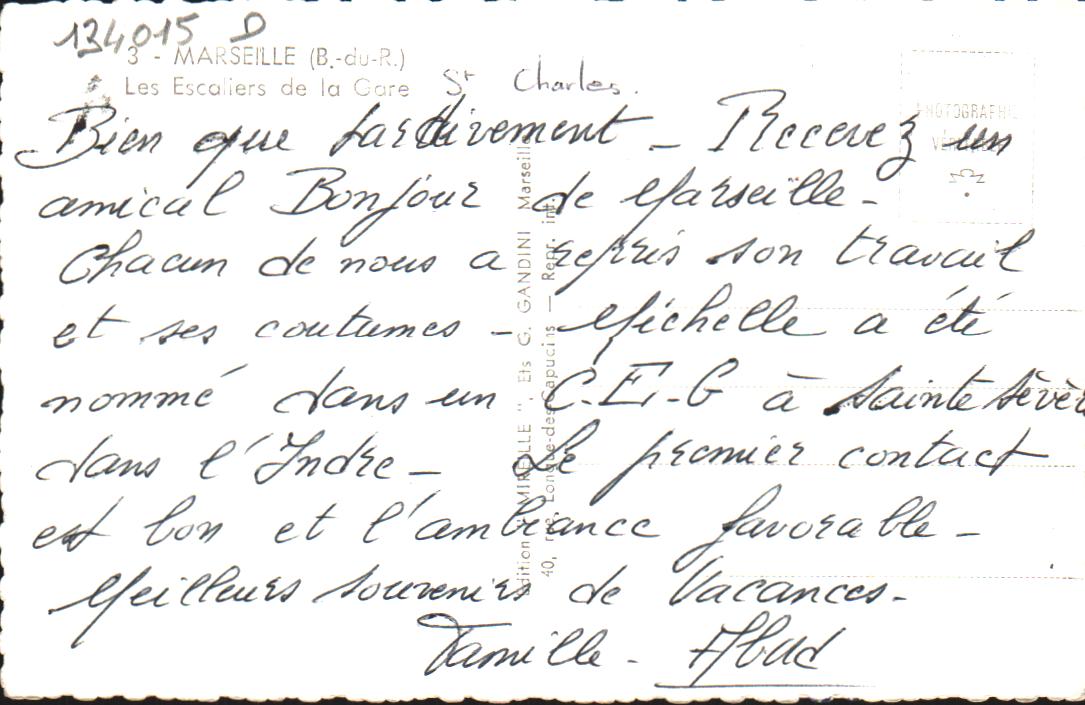 134015 D
3 - MARSEILLE (B.-du-R.)
Les Escaliers de la Gare St Charles.
Bien que tardivement - Recevez un
amical Bonjour de Marseille -
Chacun de nous a repris son travail
et ses coutumes - Michelle a été
nommé dans un C.E.G à Sainte Sévèr
dans l'Indre - Le premier contact
est bon et l'ambiance favorable -
Meilleurs souvenirs de Vacances -
Famille -
Edition "MIREILLE", Ets G. GANDINI Marseille
40, rue Longue-des-Capucins — Repr. int.
PHOTOGRAPHIE
VÉRITABLE